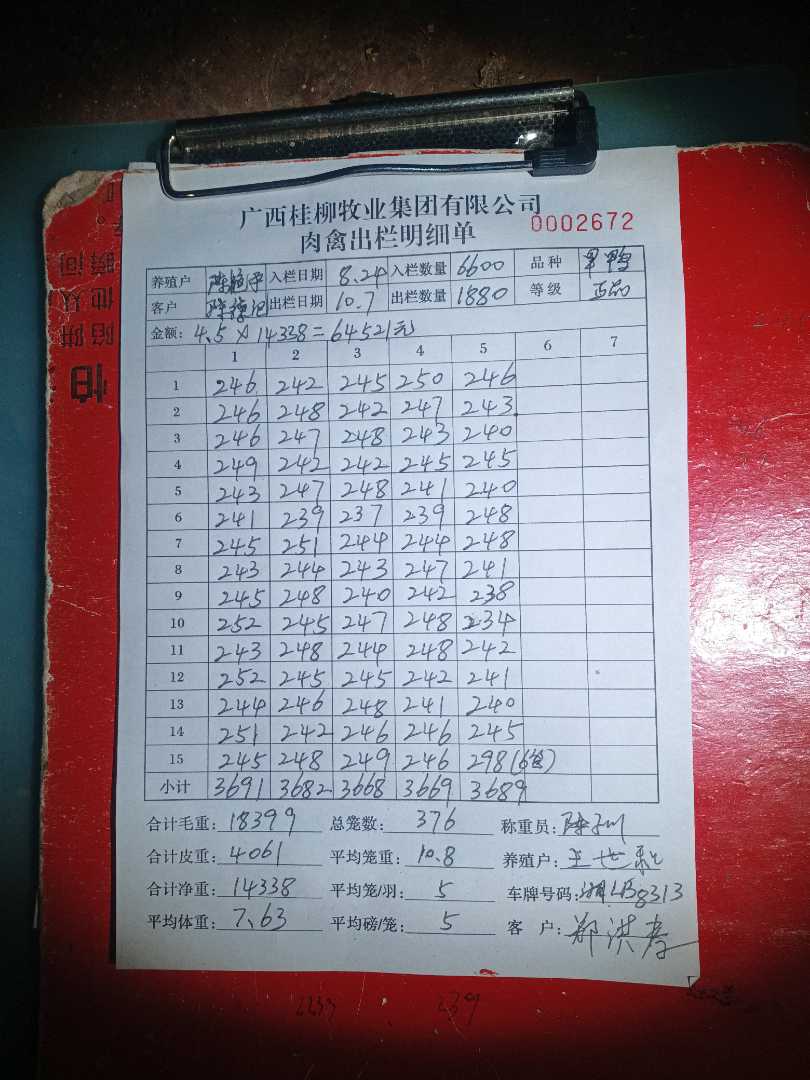 广西桂柳牧业集团有限公司
肉禽出栏明细单 0002672
养殖户 入栏日期 8.24 入栏数量 6600 品种
客户 出栏日期 10.7 出栏数量 1880 等级 正品
金额: 4.5 × 14338 = 64521元
1 2 3 4 5 6 7
1 246 242 245 250 246
2 246 248 242 247 243
3 246 247 248 243 240
4 249 242 242 245 245
5 243 247 248 241 240
6 241 239 237 239 248
7 245 251 244 244 248
8 243 244 243 247 241
9 245 248 240 242 238
10 252 245 247 248 234
11 243 248 244 248 242
12 252 245 245 242 241
13 244 246 248 241 240
14 251 242 246 246 245
15 245 248 249 246 298(6笼)
小计 3691 3682 3668 3669 3689
合计毛重: 18399 总笼数: 376 称重员:
合计皮重: 4061 平均笼重: 10.8 养殖户:
合计净重: 14338 平均笼/羽: 5 车牌号码: 湘LB8313
平均体重: 7.63 平均磅/笼: 5 客户: 郑洪
2233 239